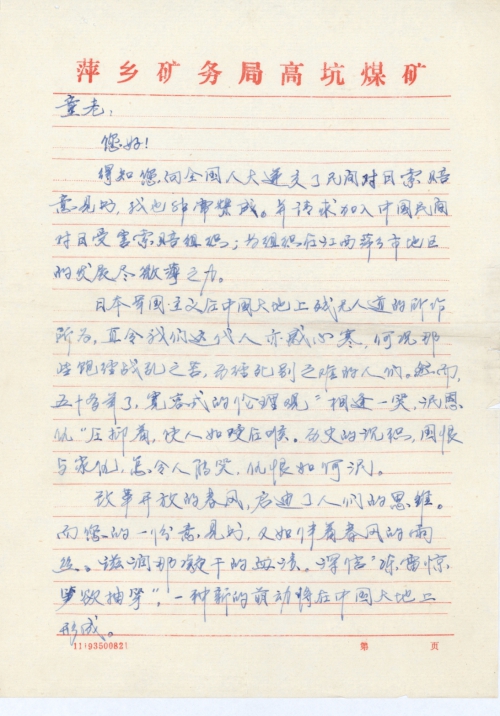 萍乡矿务局高坑煤矿
童老：
您好！
得知您向全国人大递交了民间对日索赔
意见书，我也非常赞成。并请求加入中国民间
对日受害索赔组织；为组织在江西萍乡市地区
的发展尽微薄之力。
日本军国主义在中国大地上残无人道的所作
所为，直令我们这代人亦感心寒，何况那
些饱战乱之苦，死别之难的人们。然而，
五十多年了，宽容式的伦理观"相逢一笑，泯恩
仇"压抑着，使人如咬在喉。历史的沉积，国恨
与家仇，怎令人笑，仇恨如何泯。
改革开放的春风，启迪了人们的思维。
而您的一份意见书，又如伴着春风的雨
丝。滋润那凝干的血渍。深信"陈雷惊
笋欲抽芽"，一种新的萌动将在中国大地上
形成。
11(9350082)
第 页